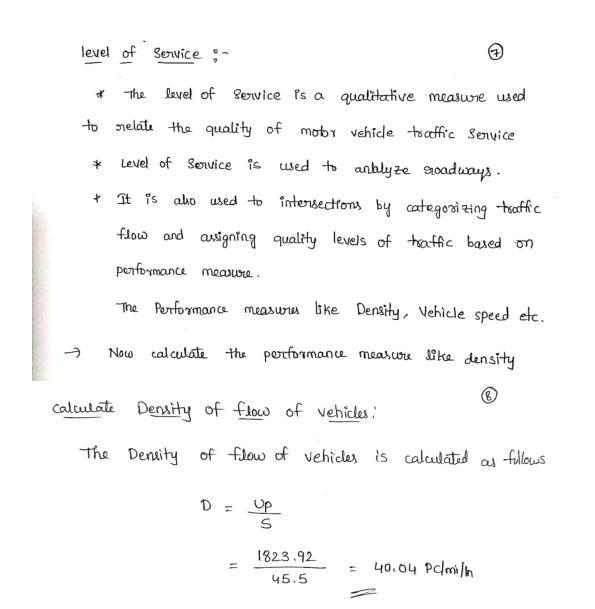 level of Service :-
7
* The level of Service is a qualitative measure used
to relate the quality of motor vehicle traffic Service
* Level of Service is used to analyze roadways.
* It is also used to intersections by categorizing traffic
flow and assigning quality levels of traffic based on
performance measure.
The Performance measures like Density, Vehicle speed etc.
→ Now calculate the performance measure like density
8
Calculate Density of flow of vehicles:
The Density of flow of vehicles is calculated as follows
D = Up / S
= 1823.92 / 45.5 = 40.04 Pc/mi/ln